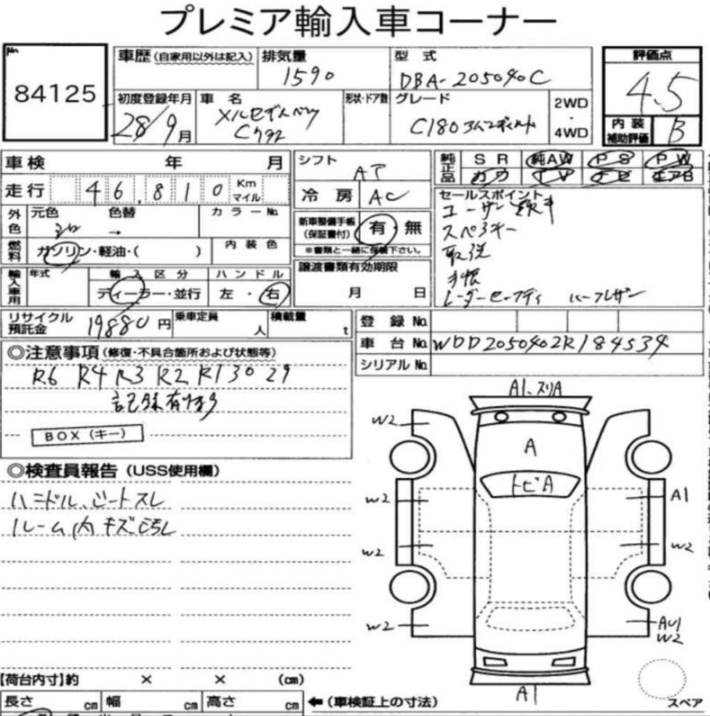 プレミア輸入車コーナー
No. 84125
車歴 (自家用以外は記入) 排気量 1590 型式 DBA-205040C 評価点 4.5
初度登録年月 28/9月 車名 メルセデスベンツ Cクラス 形状・ドア数 グレード C180 2WD ・ 4WD 内装補助評価 B
車検 年 月 シフト AT 純正品 SR 純AW PS PW
カワ TV ナビ エアB
走行 46,810 Km マイル 冷房 AC セールスポイント
外色 元色 シロ 色替 → カラーNo. 新車整備手帳 (保証書付) 有・無 ユーザー買取車
※書類と一緒に保管下さい。 スペアキー
燃料 ガソリン・軽油・( ) 内装色 取説
輸入車用 年式 輸入区分 ディーラー・並行 ハンドル 左・右 譲渡書類有効期限 月 日 手帳
レーダーセーフティ ハーフレザー
リサイクル預託金 19880円 乗車定員 人 積載量 t 登録No.
車台No. WDD2050402R184534
シリアルNo.
◎注意事項 (修復・不具合箇所および状態等)
R6 R4 R3 R2 R1 30 29
記録有ります
BOX(キー)
◎検査員報告 (USS使用欄)
ハンドル、シートスレ
ルーム内キズ汚れ
A1、スリA
W2
A
トビA
W2 A1
W2 W2
W2 AU1
W2
A1
スペア
【荷台内寸】約 × × (cm)
長さ cm 幅 cm 高さ cm ←(車検証上の寸法)